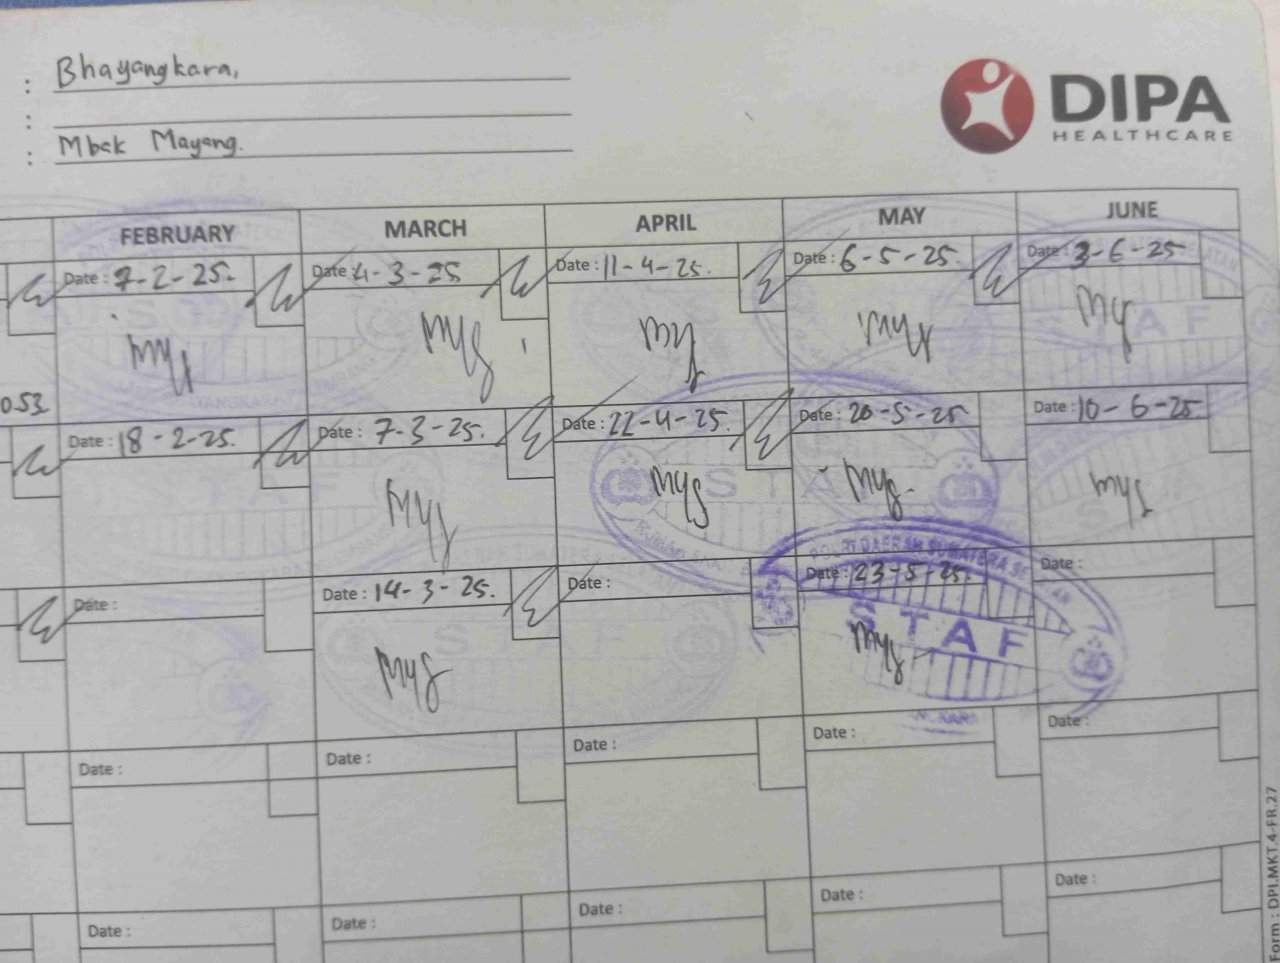 : Bhayangkara,
:
: Mbak Mayang.
DIPA
HEALTHCARE
FEBRUARY MARCH APRIL MAY JUNE
Date : 7-2-25. Date : 4-3-25 Date : 11-4-25. Date : 6-5-25. Date : 3-6-25
053
Date : 18-2-25. Date : 7-3-25. Date : 22-4-25. Date : 20-5-25 Date : 10-6-25
Date : Date : 14-3-25. Date : Date : 23-5-25. Date :
STAF
Date : Date : Date : Date : Date :
Date : Date : Date : Date : Date :
Form : DPI.MKT.4-FR.27